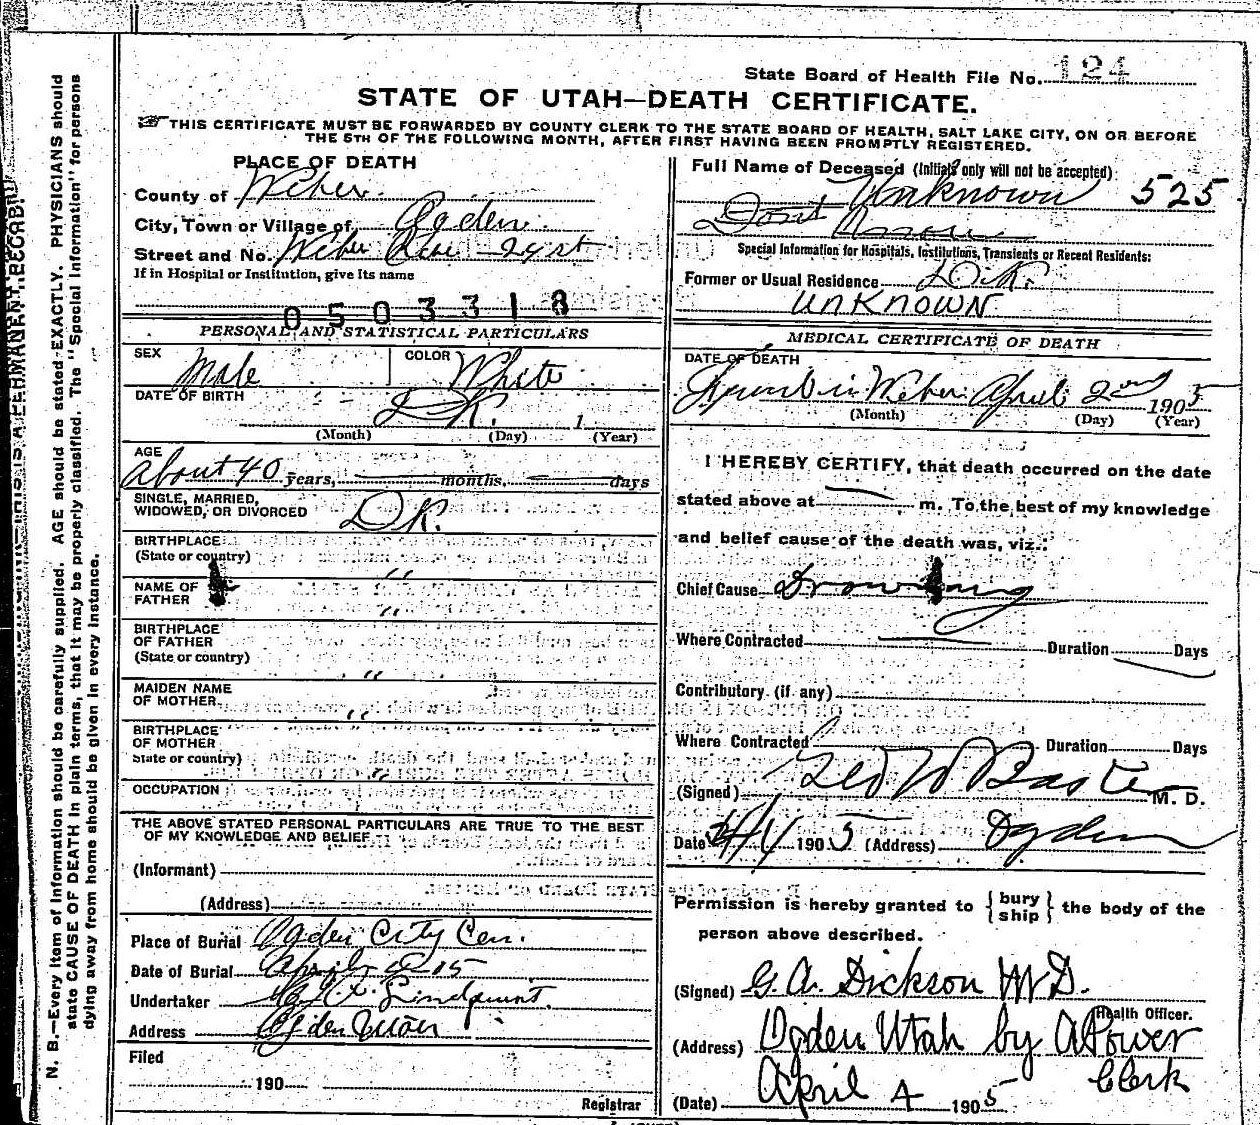 State Board of Health File No. 124
STATE OF UTAH—DEATH CERTIFICATE.
THIS CERTIFICATE MUST BE FORWARDED BY COUNTY CLERK TO THE STATE BOARD OF HEALTH, SALT LAKE CITY, ON OR BEFORE
THE 5TH OF THE FOLLOWING MONTH, AFTER FIRST HAVING BEEN PROMPTLY REGISTERED.
PLACE OF DEATH
County of Weber
City, Town or Village of Ogden
Street and No. Weber 24 st
If in Hospital or Institution, give its name
0503318
PERSONAL AND STATISTICAL PARTICULARS
SEX Male
COLOR White
DATE OF BIRTH D.K. 1
(Month) (Day) (Year)
AGE
About 40 years, months, days
SINGLE, MARRIED,
WIDOWED, OR DIVORCED D.K.
BIRTHPLACE
(State or country) "
NAME OF
FATHER "
BIRTHPLACE
OF FATHER
(State or country) "
MAIDEN NAME
OF MOTHER "
BIRTHPLACE
OF MOTHER
State or country) "
OCCUPATION
THE ABOVE STATED PERSONAL PARTICULARS ARE TRUE TO THE BEST
OF MY KNOWLEDGE AND BELIEF
(Informant)
(Address)
Place of Burial Ogden City Cem.
Date of Burial April 05
Undertaker Lindquist
Address Ogden Utah
Filed
190
Registrar
Full Name of Deceased (Initials only will not be accepted)
Unknown 525
Dont Know
Special Information for Hospitals, Institutions, Transients or Recent Residents:
Former or Usual Residence D.K.
UNKNOWN
MEDICAL CERTIFICATE OF DEATH
DATE OF DEATH
Found in Weber April 2nd 1905
(Month) (Day) (Year)
I HEREBY CERTIFY, that death occurred on the date
stated above at m. To the best of my knowledge
and belief cause of the death was, viz.:
Chief Cause Drowning
Where Contracted Duration Days
Contributory (if any)
Where Contracted Duration Days
(Signed) Geo W Baxter M. D.
Date 4/4 1905 (Address) Ogden
Permission is hereby granted to {bury ship} the body of the
person above described.
(Signed) G. A. Dickson M D.
Health Officer.
(Address) Ogden Utah by A Power
Clerk
(Date) April 4 1905
N. B.—Every item of information should be carefully supplied. AGE should be stated EXACTLY. PHYSICIANS should
state CAUSE OF DEATH in plain terms, that it may be properly classified. The "Special Information" for persons
dying away from home should be given in every instance.